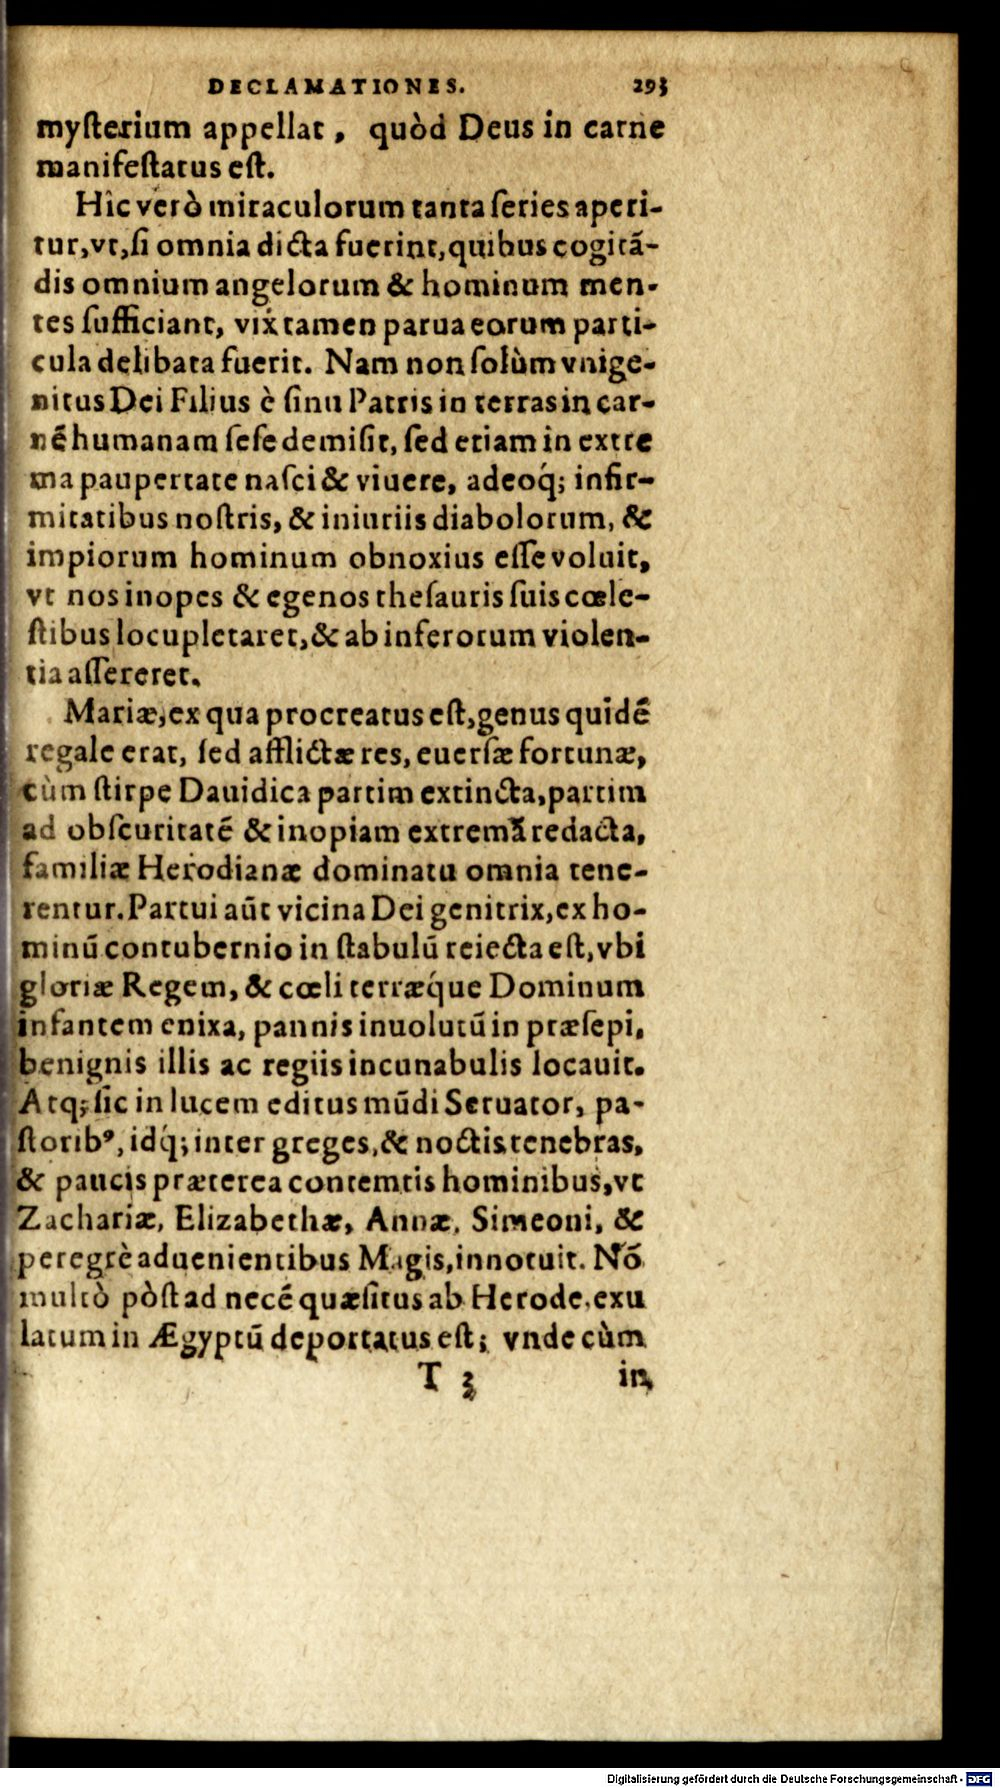 DECLAMATIONES. 293
myſterium appellat, quòd Deus in carne
manifeſtatus eſt.
Hîc verò miraculorum tanta ſeries aperi-
tur, vt, ſi omnia dicta fuerint, quibus cogitã-
dis omnium angelorum & hominum men-
tes ſufficiant, vix tamen parua eorum parti-
cula delibata fuerit. Nam non ſolùm vnige-
nitus Dei Filius è ſinu Patris in terras in car-
nẽ humanam ſeſe demiſit, ſed etiam in extre
ma paupertate naſci & viuere, adeoq́; infir-
mitatibus noſtris, & iniuriis diabolorum, &
impiorum hominum obnoxius eſſe voluit,
vt nos inopes & egenos theſauris ſuis cœle-
ſtibus locupletaret, & ab inferorum violen-
tia aſſereret.
Mariæ, ex qua procreatus eſt, genus quidẽ
regale erat, ſed afflictæ res, euerſæ fortunæ,
cùm ſtirpe Dauidica partim extincta, partim
ad obſcuritatẽ & inopiam extremã redacta,
familiæ Herodianæ dominatu omnia tene-
rentur. Partui aũt vicina Dei genitrix, ex ho-
minũ contubernio in ſtabulũ reiecta eſt, vbi
gloriæ Regem, & cœli terræq́ue Dominum
infantem enixa, pannis inuolutũ in præſepi,
benignis illis ac regiis incunabulis locauit.
Atq; ſic in lucem editus mũdi Seruator, pa-
ſtoribꝰ, idq́; inter greges, & noctis tenebras,
& paucis præterea contemtis hominibus, vt
Zachariæ, Elizabethæ, Annæ, Simeoni, &
peregrè aduenientibus Magis, innotuit. Nõ
multò pòſt ad necẽ quæſitus ab Herode, exu
latum in Ægyptũ deportatus eſt; vnde cùm
T 3 in
Digitalisierung gefördert durch die Deutsche Forschungsgemeinschaft - DFG